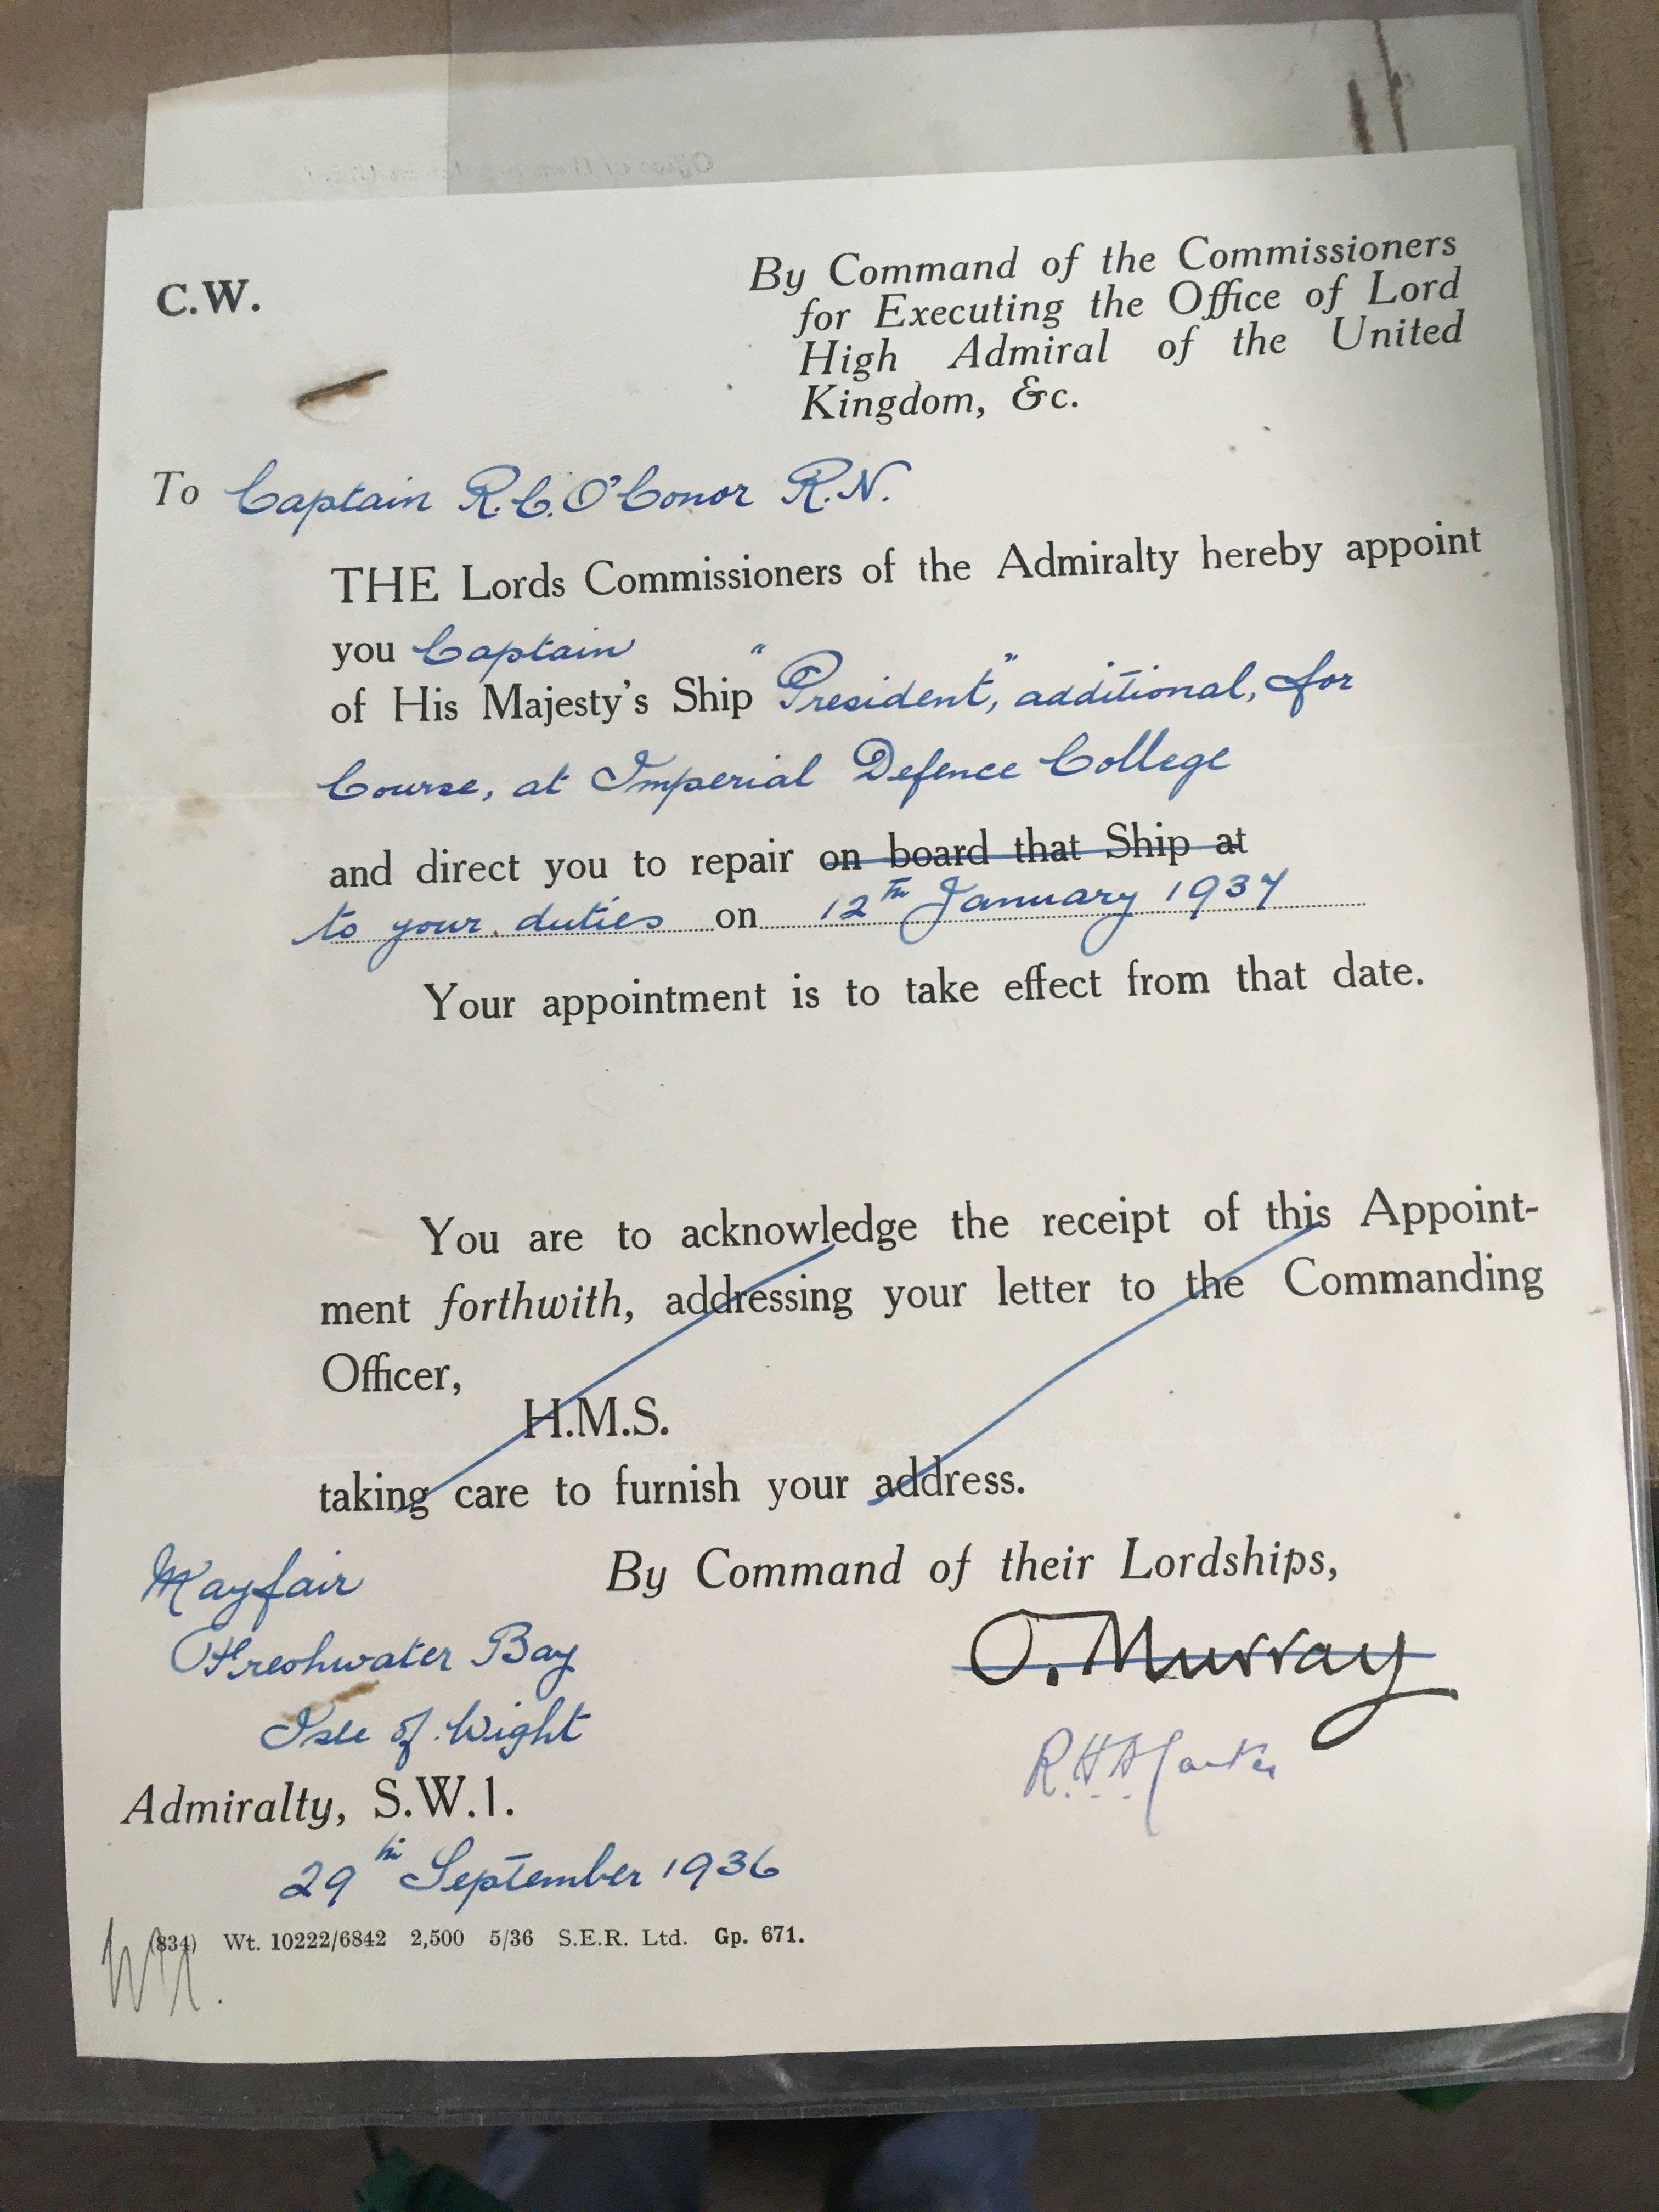 C.W.
By Command of the Commissioners
for Executing the Office of Lord
High Admiral of the United
Kingdom, &c.
To Captain R.C. O'Conor R.N.
THE Lords Commissioners of the Admiralty hereby appoint
you Captain
of His Majesty's Ship "President", additional, for
Course, at Imperial Defence College
and direct you to repair on board that Ship at
to your duties on 12th January 1937
Your appointment is to take effect from that date.
You are to acknowledge the receipt of this Appoint-
ment forthwith, addressing your letter to the Commanding
Officer,
H.M.S.
taking care to furnish your address.
By Command of their Lordships,
O. Murray
R.H.A. Carter
Mayfair
Freshwater Bay
Isle of Wight
Admiralty, S.W.1.
29th September 1936
(834) Wt. 10222/6842 2,500 5/36 S.E.R. Ltd. Gp. 671.